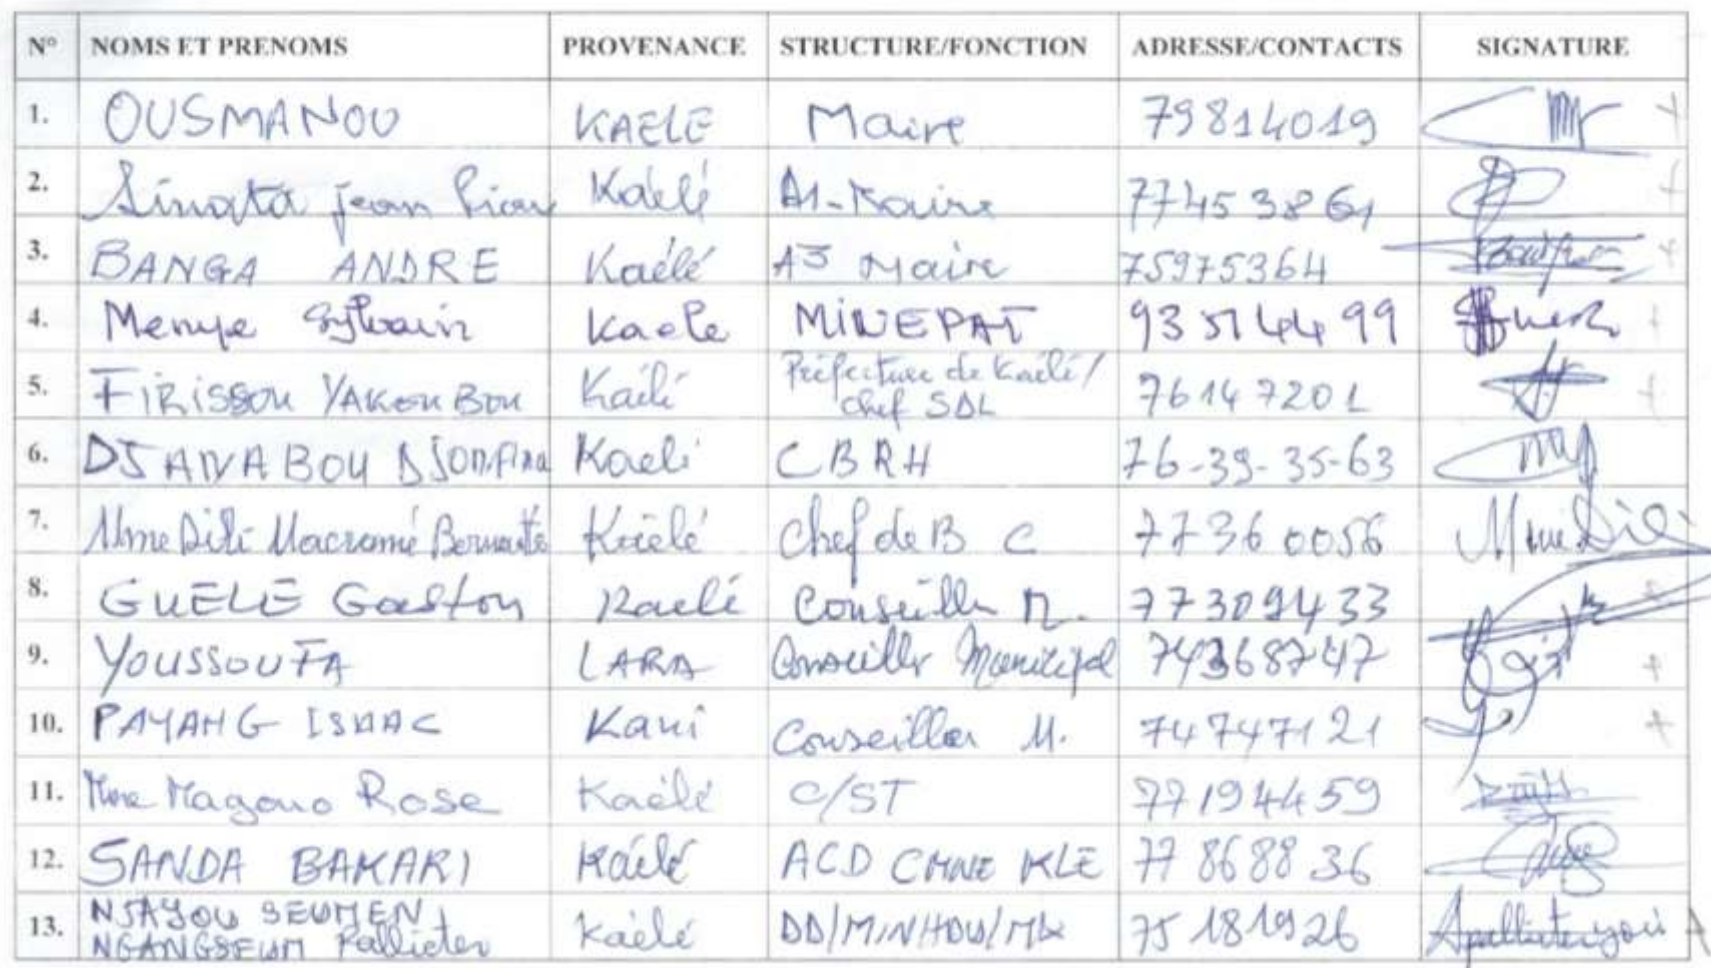 N° NOMS ET PRENOMS PROVENANCE STRUCTURE/FONCTION ADRESSE/CONTACTS SIGNATURE
1. OUSMANOU KAELE Maire 79814019
2. Sinata Jean Kaélé A1-Maire 77453861
3. BANGA ANDRE Kaélé A3 Maire 75975364
4. Menye Sylvain Kaele MINEPAT 93514499
5. FIRISSOU YAKOUBOU Kaélé Préfecture de Kaélé/
Chef SDL 76147201
6. DJANABOU Kaelé CBRH 76-39-35-63
7. Mme Dili Kaélé Chef de B C 77360056 Mme Dili
8. GUELE Gaston Kaelé Conseiller M. 77309433
9. YOUSSOUFA LARA Conseiller Municipal 74368747
10. PAYANG ISAAC Kani Conseiller M. 74747121
11. Mme Magono Rose Kaélé C/ST 77194459
12. SANDA BAKARI Kaélé ACD CMNE KLE 77868836
13. NJAYOU SEUMEN
NGANGSEUM Pallieter Kaélé DD/MINHDU/MK 75181926